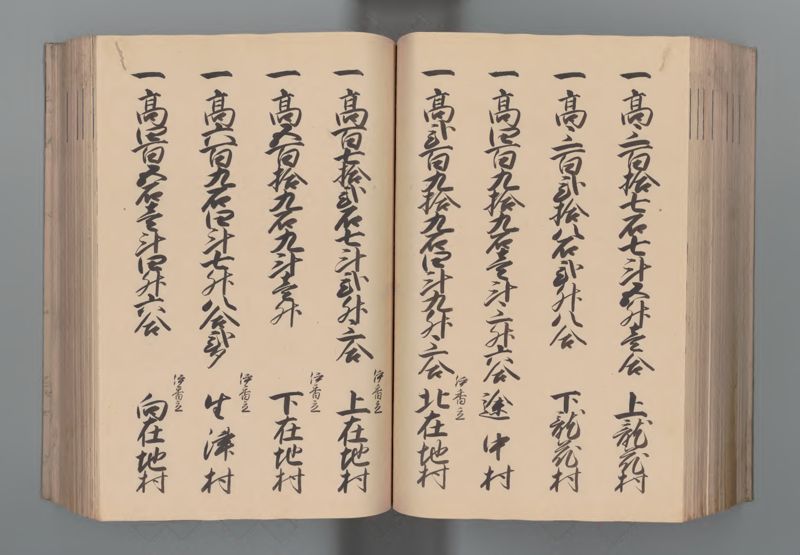 一髙三百拾七石七斗五升壱合 上龍花村
一髙三百弐拾八石弐升八合 下龍花村
一髙四百九拾九石壱斗三升六合 途中村
一髙弐百九拾九石四斗九升三合 伊香立 北在地村
一髙百七拾弐石七斗弐升三合 伊香立 上在地村
一髙五百拾九石九斗壱升 伊香立 下在地村
一髙六百九石四斗七升八合弐勺 伊香立 生津村
一髙四百五石壱斗四升六合 伊香立 向在地村